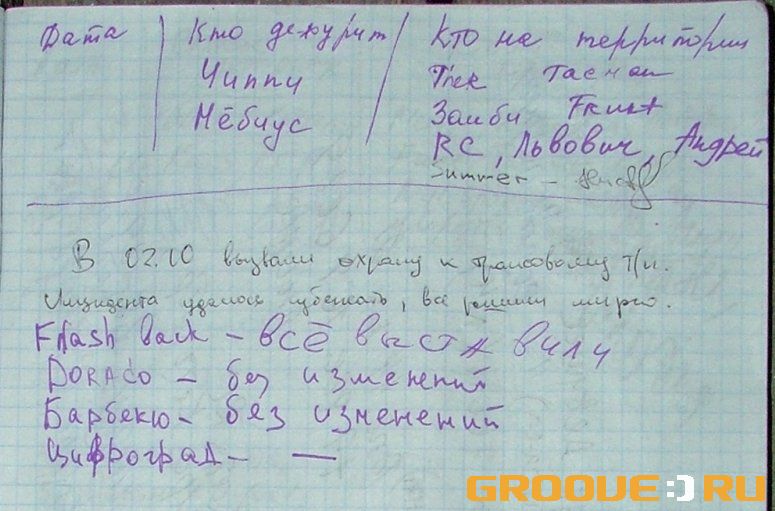 Дата Кто дежурит Кто на территории
Чиппи Trek Тасман
Мёбиус Замби Fruit
RC, Львович, Андрей
Summer –
В 02.10 вызвали охрану к трансовому т/п.
Инцидента удалось избежать, все решили мирно.
Flash back – всё выставили
DORADO – без изменений
Барбекю – без изменений
Цифроград – —
GROOVE:)RU